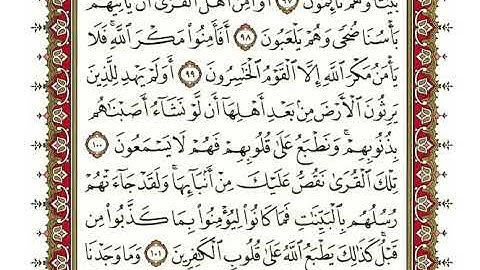 بَيَٰتٗا وَهُمۡ نَآئِمُونَ ٩٧ أَوَأَمِنَ أَهۡلُ ٱلۡقُرَىٰٓ أَن يَأۡتِيَهُم
بَأۡسُنَا ضُحٗى وَهُمۡ يَلۡعَبُونَ ٩٨ أَفَأَمِنُواْ مَكۡرَ ٱللَّهِۚ فَلَا
يَأۡمَنُ مَكۡرَ ٱللَّهِ إِلَّا ٱلۡقَوۡمُ ٱلۡخَٰسِرُونَ ٩٩ أَوَلَمۡ يَهۡدِ لِلَّذِينَ
يَرِثُونَ ٱلۡأَرۡضَ مِنۢ بَعۡدِ أَهۡلِهَآ أَن لَّوۡ نَشَآءُ أَصَبۡنَٰهُم
بِذُنُوبِهِمۡۚ وَنَطۡبَعُ عَلَىٰ قُلُوبِهِمۡ فَهُمۡ لَا يَسۡمَعُونَ ١٠٠
تِلۡكَ ٱلۡقُرَىٰ نَقُصُّ عَلَيۡكَ مِنۡ أَنۢبَآئِهَاۚ وَلَقَدۡ جَآءَتۡهُمۡ
رُسُلُهُم بِٱلۡبَيِّنَٰتِ فَمَا كَانُواْ لِيُؤۡمِنُواْ بِمَا كَذَّبُواْ مِن
قَبۡلُۚ كَذَٰلِكَ يَطۡبَعُ ٱللَّهُ عَلَىٰ قُلُوبِ ٱلۡكَٰفِرِينَ ١٠١ وَمَا وَجَدۡنَا